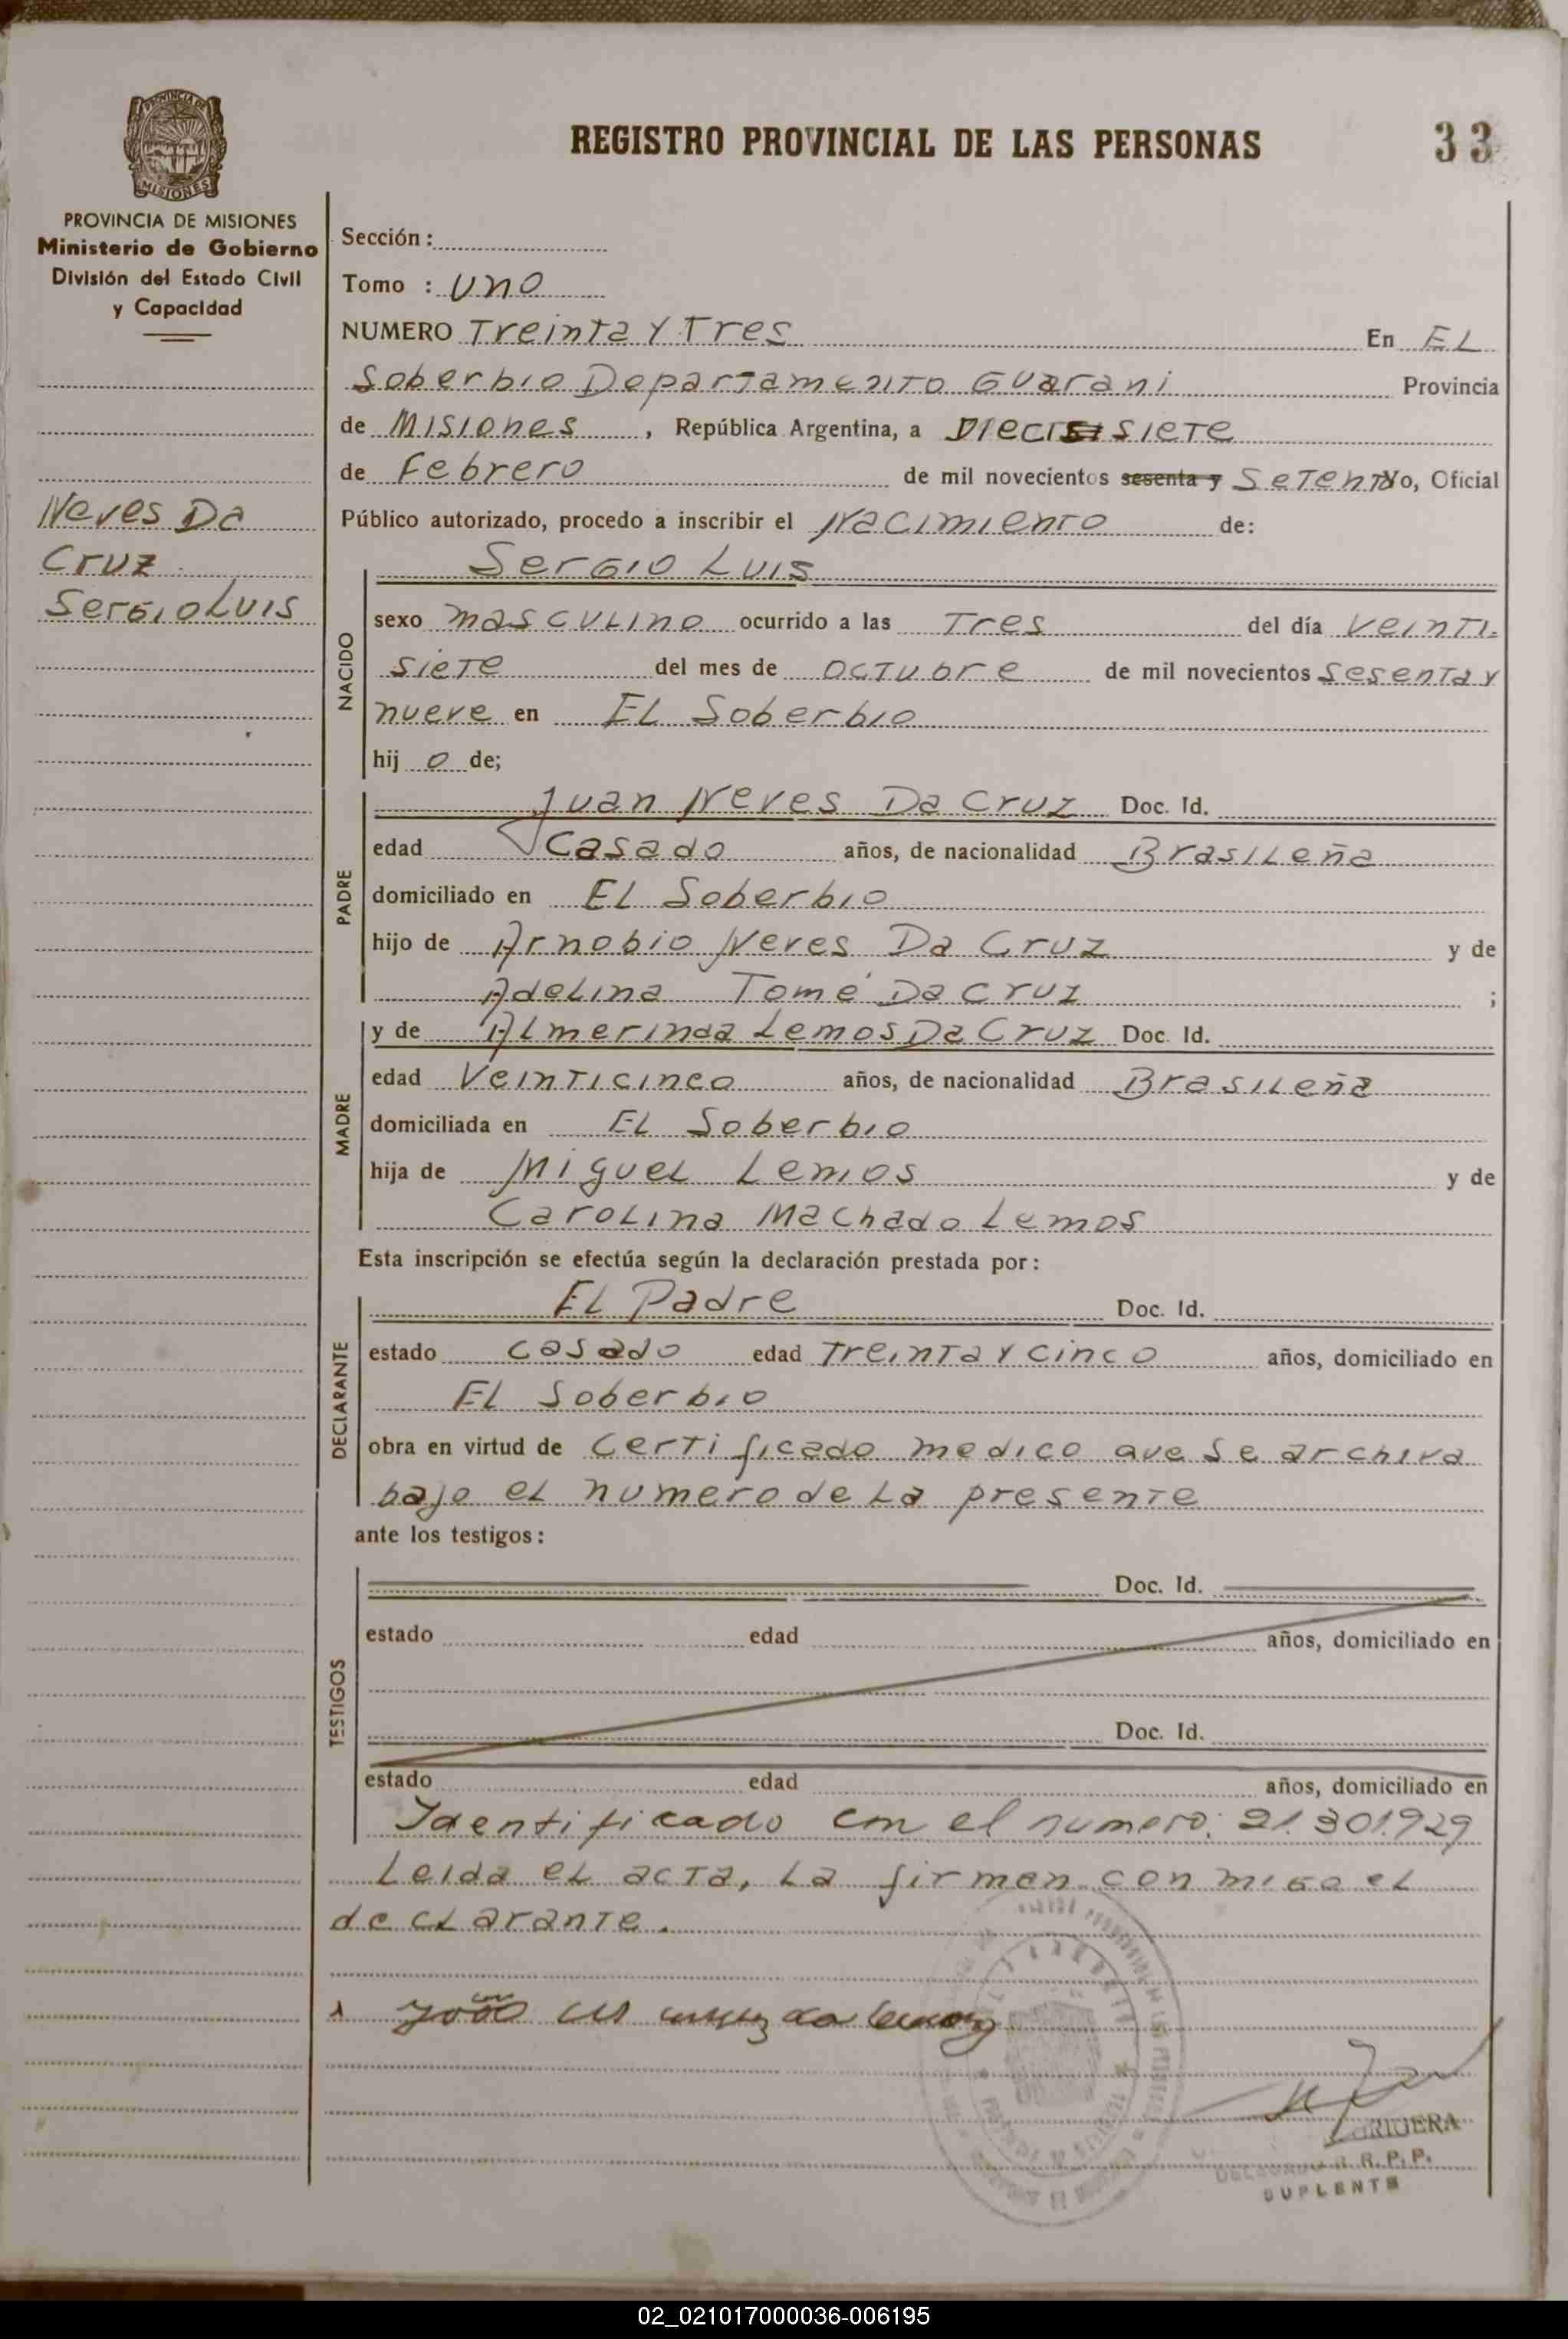 PROVINCIA DE MISIONES
REGISTRO PROVINCIAL DE LAS PERSONAS
33
PROVINCIA DE MISIONES
Ministerio de Gobierno
División del Estado Civil
y Capacidad
Neves Da
Cruz
Sergio Luis
Sección:
Tomo : Uno
NUMERO Treinta Y Tres En EL
Soberbio Departamento Guarani Provincia
de Misiones, República Argentina, a Diecisiete
de Febrero de mil novecientos sesenta y Setenta Yo, Oficial
Público autorizado, procedo a inscribir el Nacimiento de:
Sergio Luis
NACIDO
sexo masculino ocurrido a las Tres del día Veinti-
siete del mes de Octubre de mil novecientos Sesenta y
nueve en EL Soberbio
hij o de;
PADRE
Juan Neves Da Cruz Doc. Id.
edad Casado años, de nacionalidad Brasileña
domiciliado en EL Soberbio
hijo de Arnobio Neves Da Cruz y de
Adelina Tomé Da Cruz ;
MADRE
y de Almerinda Lemos Da Cruz Doc. Id.
edad Veinticinco años, de nacionalidad Brasileña
domiciliada en EL Soberbio
hija de Miguel Lemos y de
Carolina Machado Lemos
Esta inscripción se efectúa según la declaración prestada por:
DECLARANTE
EL Padre Doc. Id.
estado casado edad Treinta y cinco años, domiciliado en
EL Soberbio
obra en virtud de Certificado medico que se archiva
bajo el numero de La presente
ante los testigos:
TESTIGOS
Doc. Id.
estado edad años, domiciliado en
Doc. Id.
estado edad años, domiciliado en
Identificado con el numero: 21.301.929
Leida el acta, La firman conmigo el
declarante.
R. R. P. P.
SUPLENTE
02_021017000036-006195